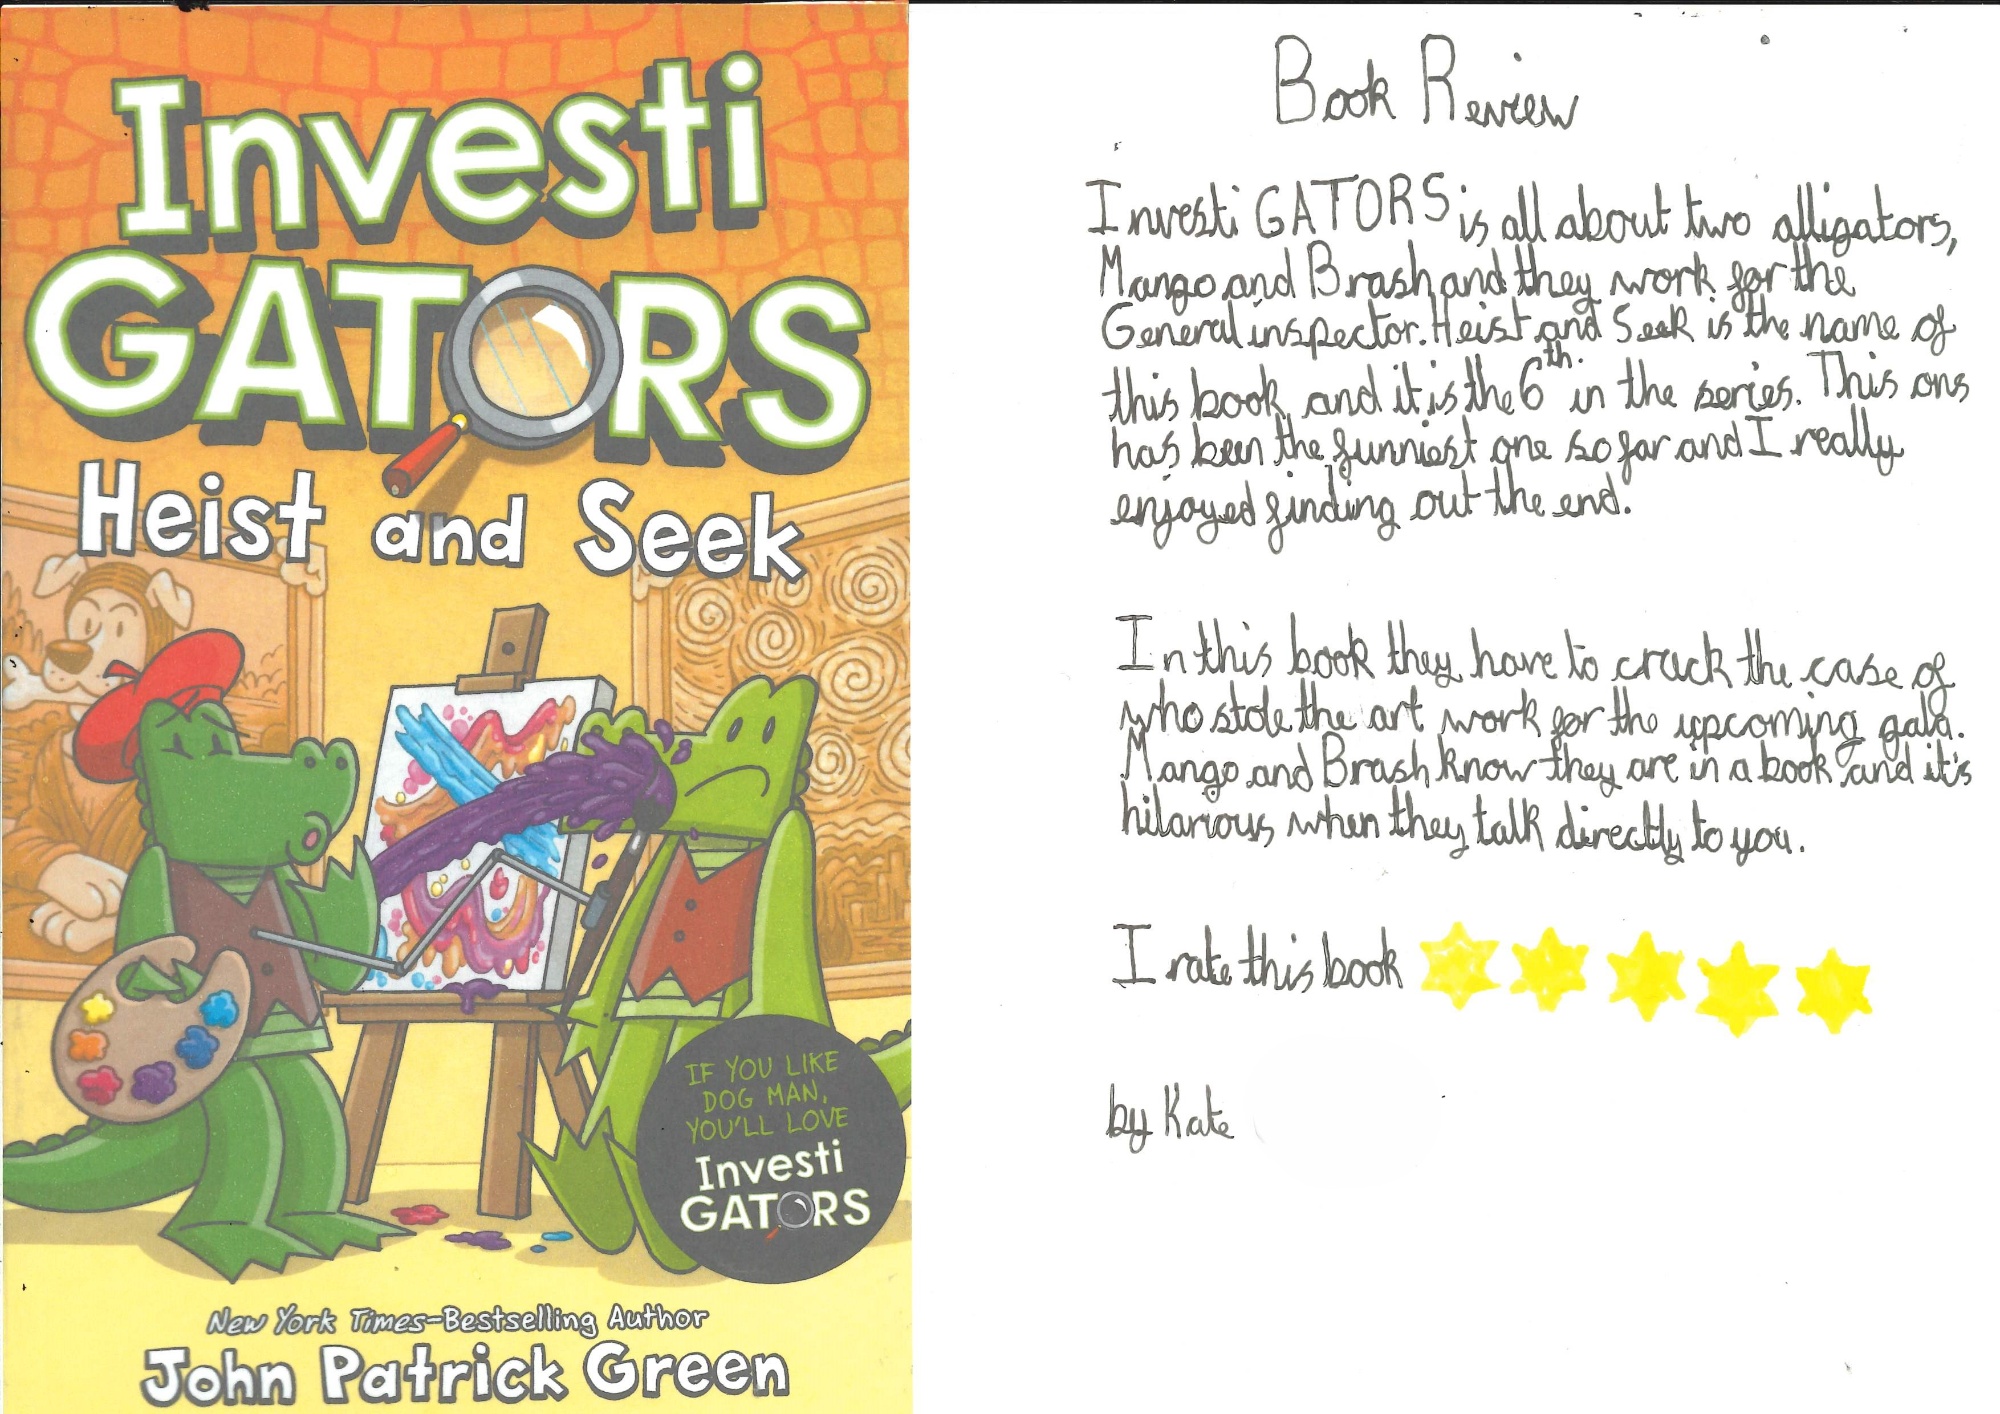 Investi
GATORS
Heist and Seek
IF YOU LIKE
DOG MAN,
YOU'LL LOVE
Investi
GATORS
New York Times-Bestselling Author
John Patrick Green
Book Review
InvestiGATORS is all about two alligators,
Mango and Brash and they work for the
General inspector. Heist and Seek is the name of
this book and it is the 6th. in the series. This one
has been the funniest one so far and I really
enjoyed finding out the end.
In this book they have to crack the case of
who stole the art work for the upcoming gala.
Mango and Brash know they are in a book and it's
hilarious when they talk directly to you.
I rate this book
by Kate